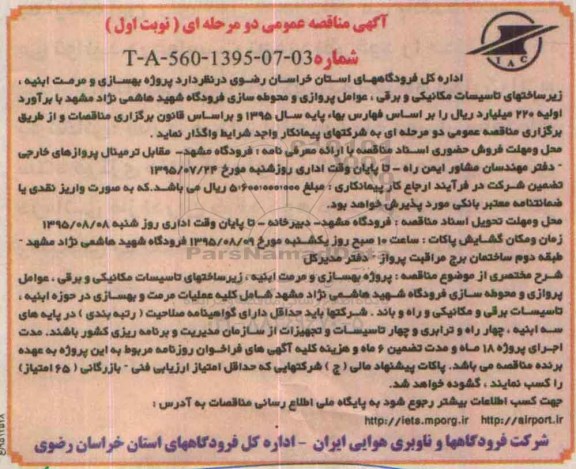 آگهی مناقصه عمومی دو مرحله ای ( نوبت اول )
شماره T-A-560-1395-07-03
IAC
اداره کل فرودگاههای استان خراسان رضوی درنظردارد پروژه بهسازی و مرمت ابنیه ،
زیرساختهای تاسیسات مکانیکی و برقی ، عوامل پروازی و محوطه سازی فرودگاه شهید هاشمی نژاد مشهد با برآورد
اولیه ۲۲۰ میلیارد ریال را بر اساس فهارس بهاء پایه سال ۱۳۹۵ و براساس قانون برگزاری مناقصات و از طریق
برگزاری مناقصه عمومی دو مرحله ای به شرکتهای پیمانکار واجد شرایط واگذار نماید .
محل ومهلت فروش حضوری اسناد مناقصه با ارائه معرفی نامه : فرودگاه مشهد– مقابل ترمینال پروازهای خارجی
- دفتر مهندسان مشاور ایمن راه – تا پایان وقت اداری روزشنبه مورخ ۱۳۹۵/۰۷/۲۴
تضمین شرکت در فرآیند ارجاع کار پیمانکاری : مبلغ ۵/۶۰۰/۰۰۰/۰۰۰ ریال می باشد.که به صورت واریز نقدی یا
ضمانتنامه معتبر بانکی مورد پذیرش خواهد بود.
محل ومهلت تحویل اسناد مناقصه : فرودگاه مشهد– دبیرخانه – تا پایان وقت اداری روز شنبه ۱۳۹۵/۰۸/۰۸
زمان ومکان گشایش پاکات : ساعت ۱۰ صبح روز یکشنبه مورخ ۱۳۹۵/۰۸/۰۹ فرودگاه شهید هاشمی نژاد مشهد -
طبقه دوم ساختمان برج مراقبت پرواز– دفتر مدیرکل
شرح مختصری از موضوع مناقصه : پروژه بهسازی و مرمت ابنیه ، زیرساختهای تاسیسات مکانیکی و برقی ، عوامل
پروازی و محوطه سازی فرودگاه شهید هاشمی نژاد مشهد شامل کلیه عملیات مرمت و بهسازی در حوزه ابنیه ،
تاسیسات برقی و مکانیکی و راه و باند . شرکتها باید حداقل دارای گواهینامه صلاحیت ( رتبه بندی ) در پایه های
سه ابنیه ، چهار راه و ترابری و چهار تاسیسات و تجهیزات از سازمان مدیریت و برنامه ریزی کشور باشند. مدت
اجرای پروژه ۱۸ ماه و مدت تضمین ۶ ماه و هزینه کلیه آگهی های فراخوان روزنامه مربوط به این پروژه به عهده
برنده مناقصه می باشد. پاکات پیشنهاد مالی ( ج ) شرکتهایی که حداقل امتیاز ارزیابی فنی - بازرگانی ( ۶۵ امتیاز)
را کسب نمایند ، گشوده خواهد شد.
جهت کسب اطلاعات بیشتر رجوع شود به پایگاه ملی اطلاع رسانی مناقصات به آدرس :
http://iets.mporg.ir http://airport.ir
شرکت فرودگاهها و ناوبری هوایی ایران - اداره کل فرودگاههای استان خراسان رضوی